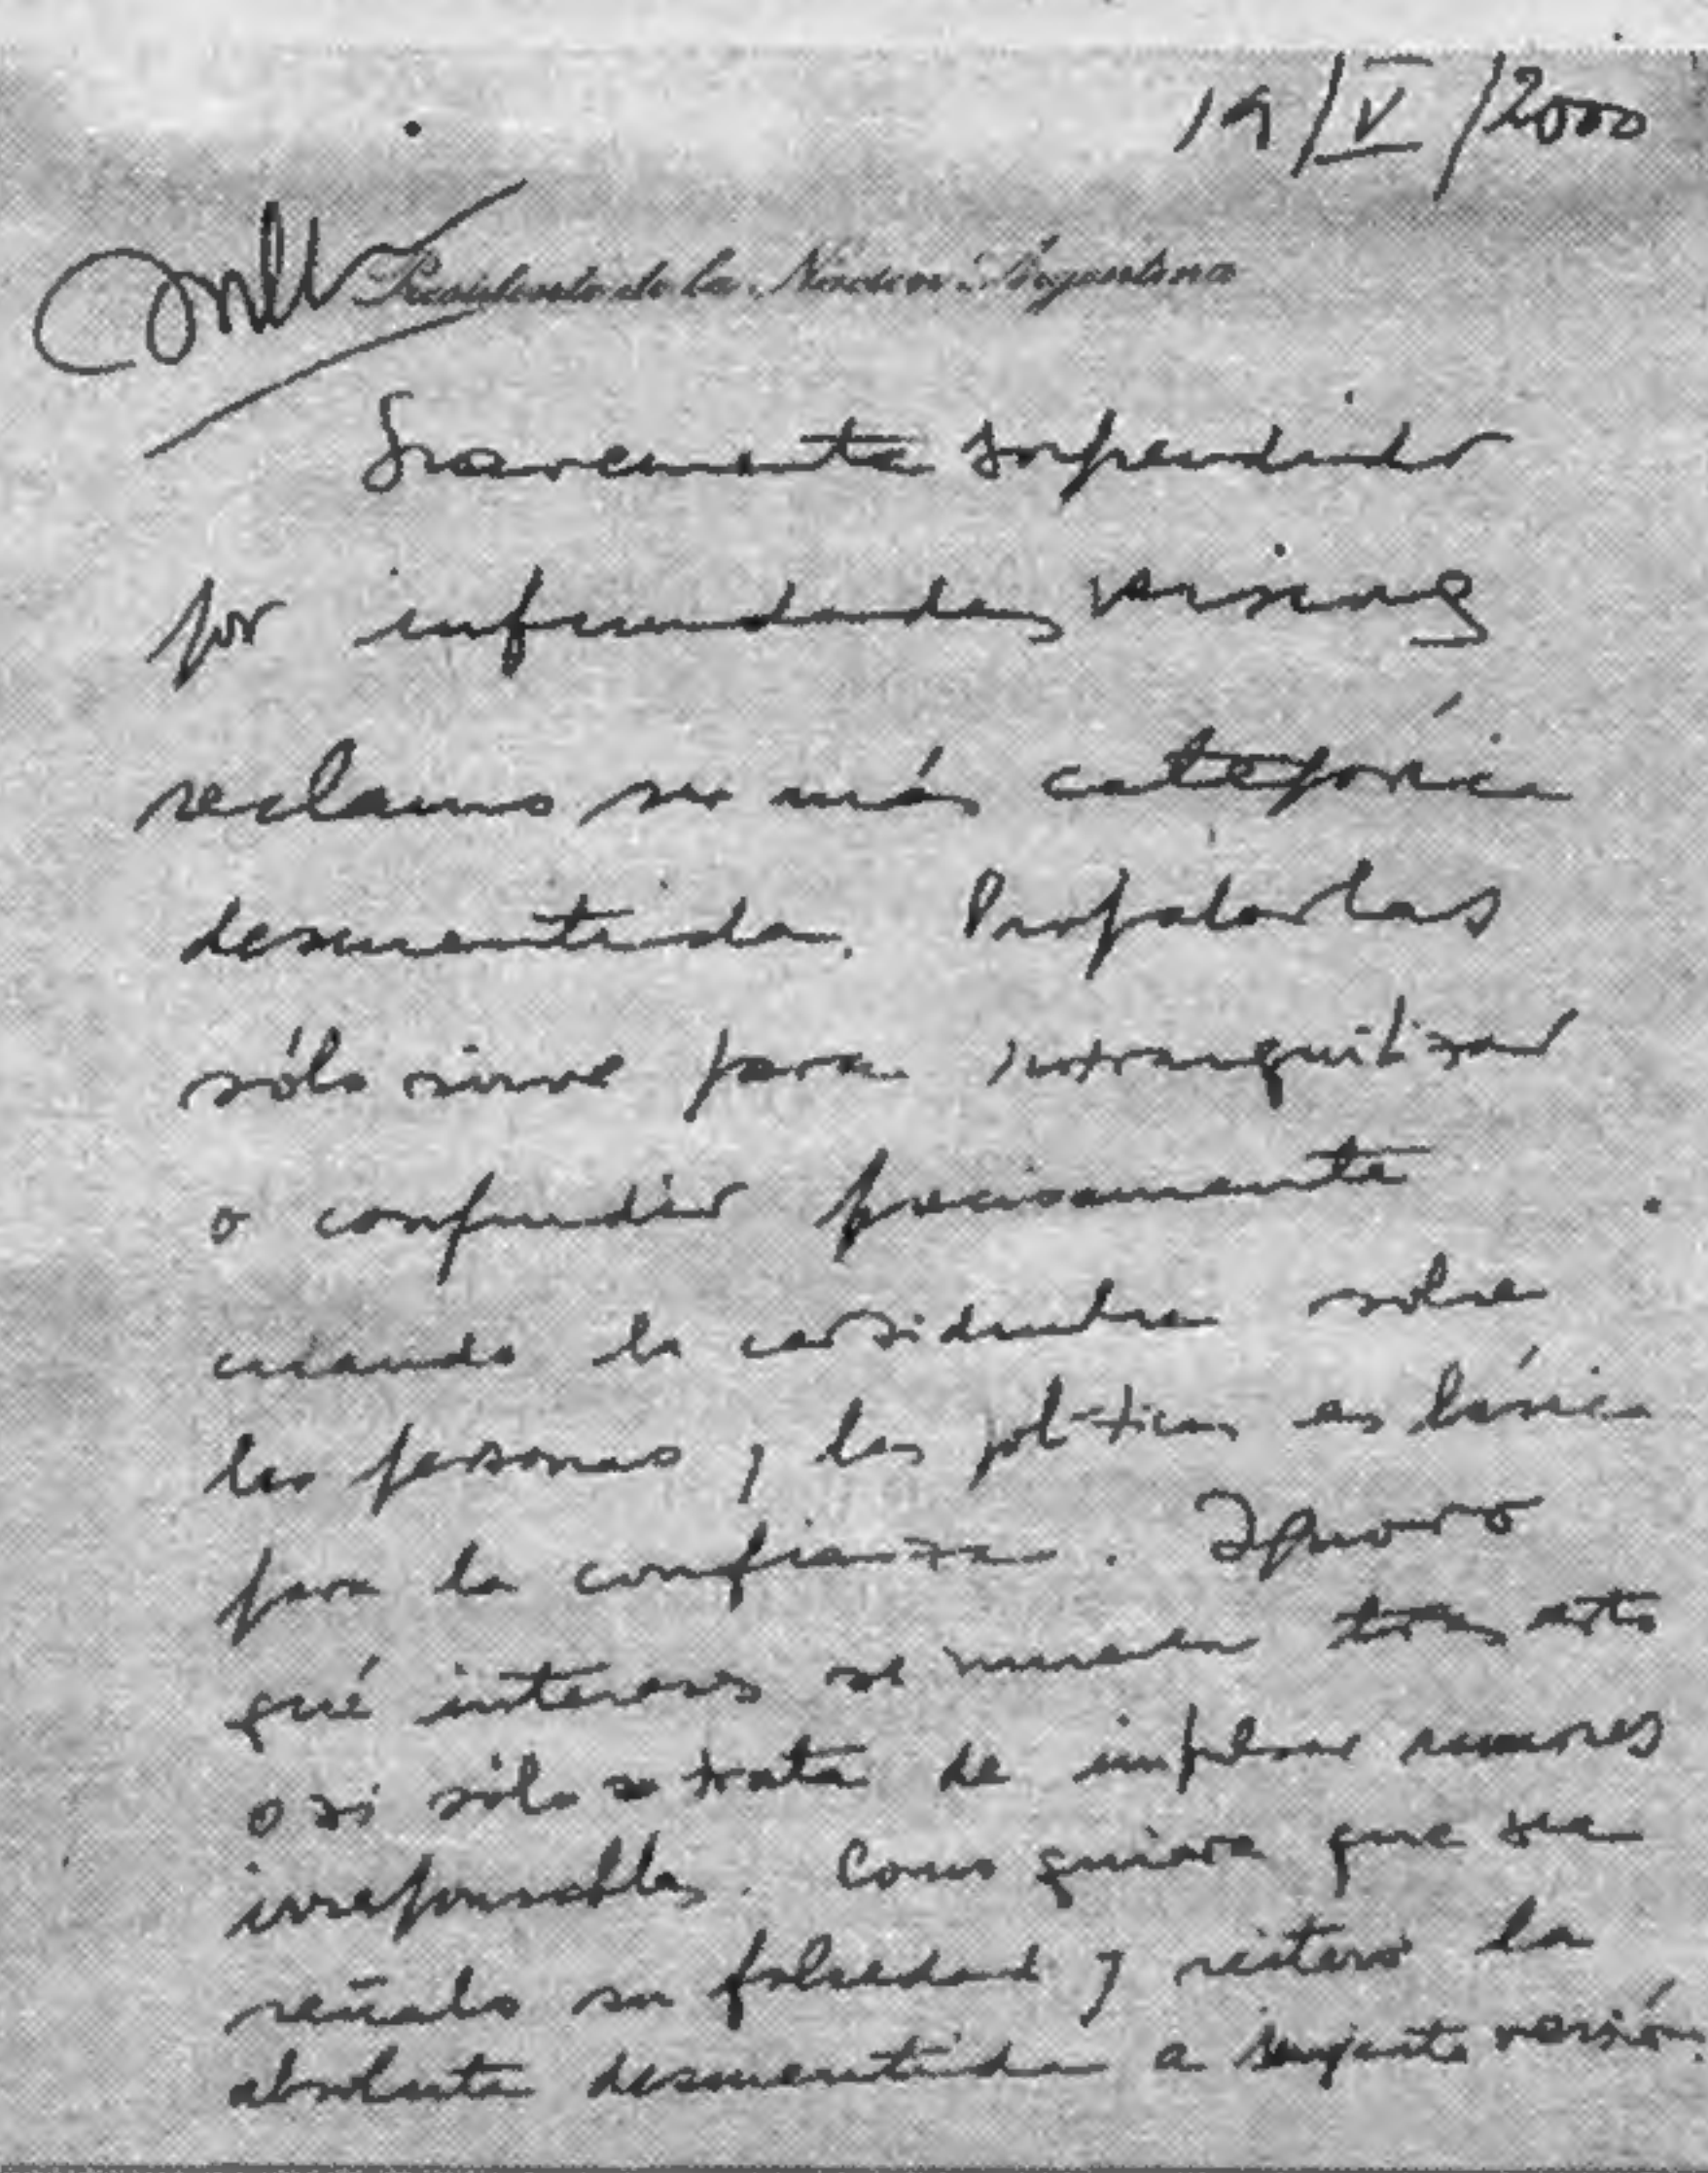 19/V/2000
Presidente de la Nación Argentina
Gravemente sorprendido
por infundadas versiones
reclamo su más categórica
desmentida. Propalarlas
sólo sirve para intranquilizar
o confundir precisamente
cuando la certidumbre sobre
las personas y las políticas es básica
para la confianza. Ignoro
qué intereses se mueven tras esto
o si sólo se trata de impulsar rumores
irresponsables. Como quiera que sea
señalo su falsedad y reitero la
absoluta desmentida a semejante versión.